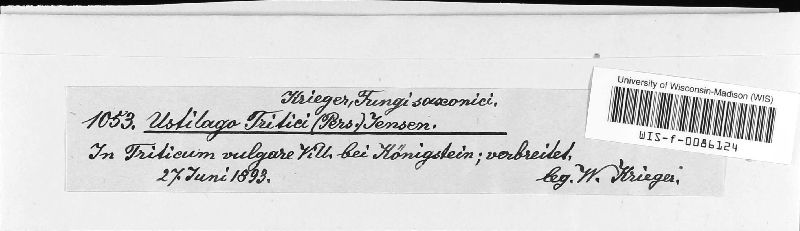 Krieger, Fungi saxonici.
1053. Ustilago Tritici (Pers.) Jensen.
In Triticum vulgare Vill. bei Königstein; verbreitet.
27 Juni 1893. leg. W. Krieger.
University of Wisconsin-Madison (WIS)
WIS-f-0086124